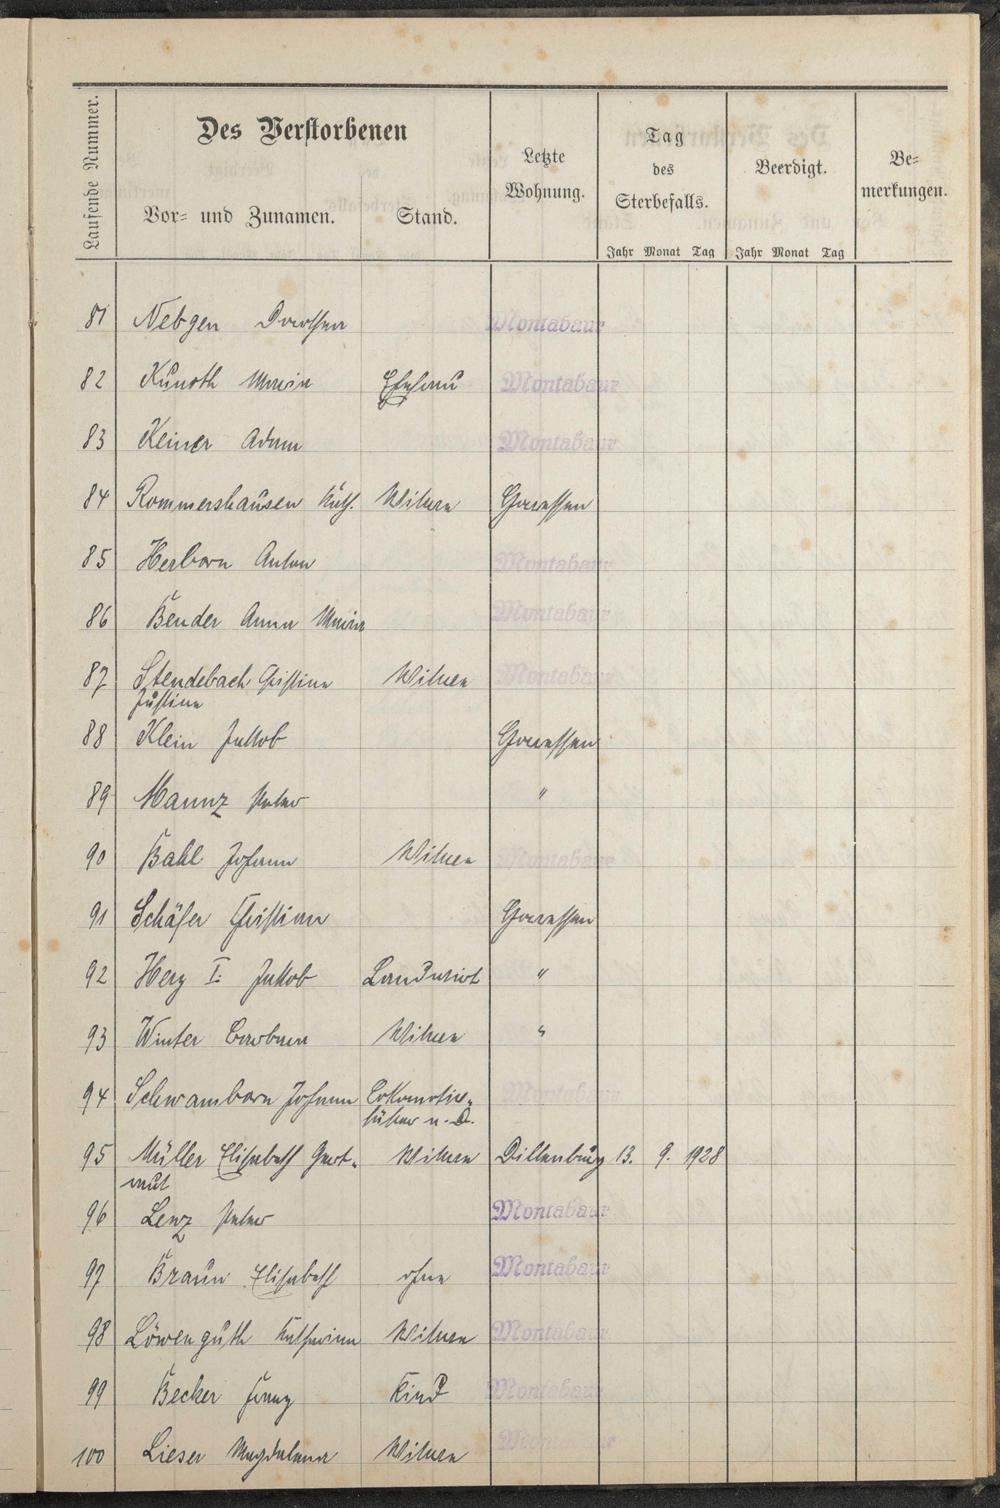 Laufende Nummer.
Des Verstorbenen
Vor- und Zunamen.
Stand.
Letzte
Wohnung.
Tag
des
Sterbefalls.
Jahr Monat Tag
Beerdigt.
Jahr Monat Tag
Be-
merkungen.
81 Nebgen Dorothea Montabaur
82 Kunoth Maria Ehefrau Montabaur
83 Keiner Adam Montabaur
84 Rommershausen Kath. Witwe
85 Herborn Anton Montabaur
86 Bender Anna Maria Montabaur
87 Stendebach Christine Witwe Montabaur
Justine
88 Klein Jakob
89 Mannz Peter "
90 Bahl Johann Witwer Montabaur
91 Schäfer Christian
92 Herz I. Jakob Landwirt "
93 Winter Barbara Witwe "
94 Schwamborn Johann Lokomotiv- Montabaur
führer a. D.
95 Müller Elisabeth Gert- Witwe Dillenburg 13. 9. 1928
rud
96 Lenz Peter Montabaur
97 Braun Elisabeth ohne Montabaur
98 Löwenguth Katharina Witwe Montabaur
99 Becker Franz Kind Montabaur
100 Lieser Magdalena Witwe Montabaur